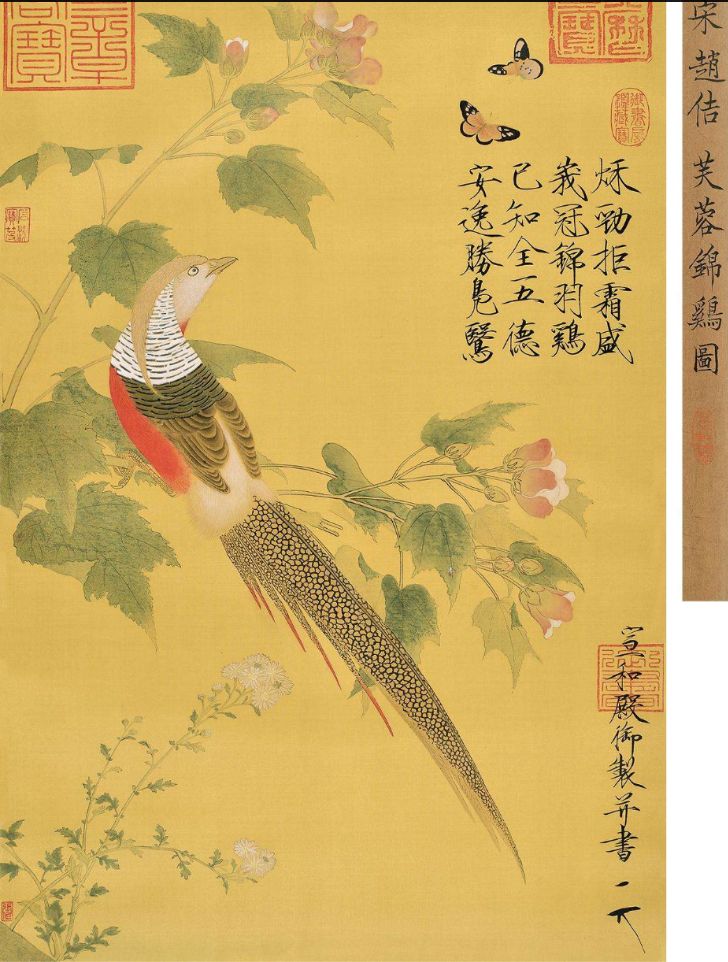 宋趙佶 芙蓉錦鷄圖
秋勁拒霜盛
峩冠錦羽鷄
已知全五德
安逸勝鳧鷖
宣和殿御製并書